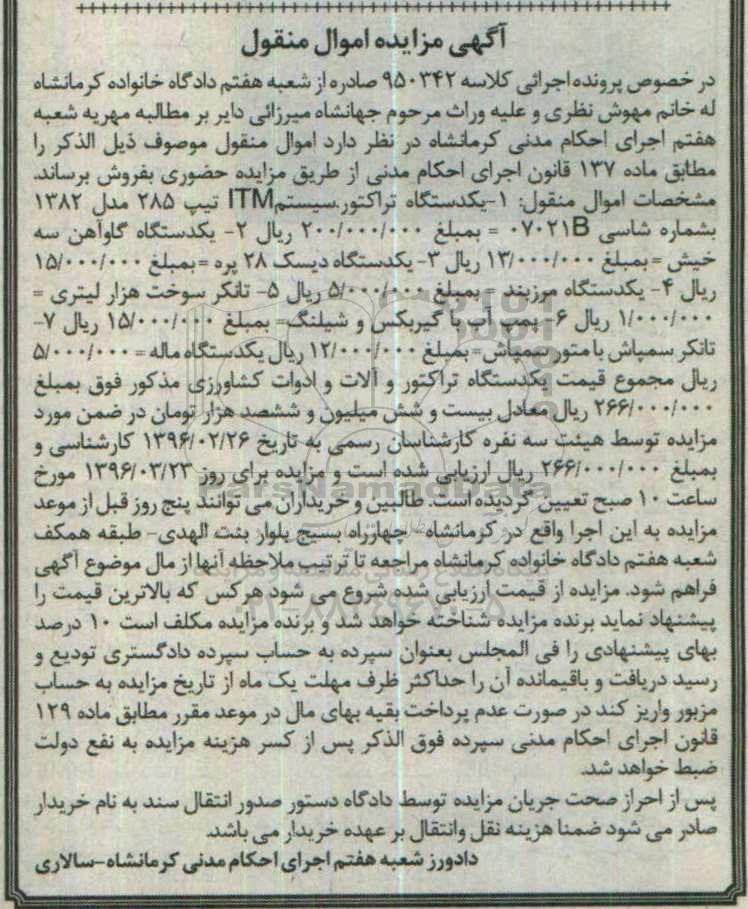 آگهی مزایده اموال منقول
در خصوص پرونده اجرائی کلاسه ۹۵۰۳۴۲ صادره از شعبه هفتم دادگاه خانواده کرمانشاه
له خانم مهوش نظری و علیه وراث مرحوم جهانشاه میرزائی دایر بر مطالبه مهریه شعبه
هفتم اجرای احکام مدنی کرمانشاه در نظر دارد اموال منقول موصوف ذیل الذکر را
مطابق ماده ۱۳۷ قانون اجرای احکام مدنی از طریق مزایده حضوری بفروش برساند.
مشخصات اموال منقول: ۱-یکدستگاه تراکتور.سیستمITM تیپ ۲۸۵ مدل ۱۳۸۲
بشماره شاسی ۰۷۰۲۱B = بمبلغ ۲۰۰/۰۰۰/۰۰۰ ریال ۲- یکدستگاه گاوآهن سه
خیش = بمبلغ ۱۳/۰۰۰/۰۰۰ ریال ۳- یکدستگاه دیسک ۲۸ پره =بمبلغ ۱۵/۰۰۰/۰۰۰
ریال ۴- یکدستگاه مرزبند = بمبلغ ۵/۰۰۰/۰۰۰ ریال ۵- تانکر سوخت هزار لیتری =
۱/۰۰۰/۰۰۰ ریال ۶- پمپ آب با گیربکس و شیلنگ= بمبلغ ۱۵/۰۰۰/۰۰۰ ریال ۷-
تانکر سمپاش با متور سمپاش= بمبلغ ۱۲/۰۰۰/۰۰۰ ریال یکدستگاه ماله = ۵/۰۰۰/۰۰۰
ریال مجموع قیمت یکدستگاه تراکتور و آلات و ادوات کشاورزی مذکور فوق بمبلغ
۲۶۶/۰۰۰/۰۰۰ ریال معادل بیست و شش میلیون و ششصد هزار تومان در ضمن مورد
مزایده توسط هیئت سه نفره کارشناسان رسمی به تاریخ ۱۳۹۶/۰۲/۲۶ کارشناسی و
بمبلغ ۲۶۶/۰۰۰/۰۰۰ ریال ارزیابی شده است و مزایده برای روز ۱۳۹۶/۰۳/۲۳ مورخ
ساعت ۱۰ صبح تعیین گردیده است. طالبین و خریداران می توانند پنج روز قبل از موعد
مزایده به این اجرا واقع در کرمانشاه- چهارراه بسیج بلوار بنت الهدی- طبقه همکف
شعبه هفتم دادگاه خانواده کرمانشاه مراجعه تا ترتیب ملاحظه آنها از مال موضوع آگهی
فراهم شود. مزایده از قیمت ارزیابی شده شروع می شود هر کس که بالاترین قیمت را
پیشنهاد نماید برنده مزایده شناخته خواهد شد و برنده مزایده مکلف است ۱۰ درصد
بهای پیشنهادی را فی المجلس بعنوان سپرده به حساب سپرده دادگستری تودیع و
رسید دریافت و باقیمانده آن را حداکثر ظرف مهلت یک ماه از تاریخ مزایده به حساب
مزبور واریز کند در صورت عدم پرداخت بقیه بهای مال در موعد مقرر مطابق ماده ۱۲۹
قانون اجرای احکام مدنی سپرده فوق الذکر پس از کسر هزینه مزایده به نفع دولت
ضبط خواهد شد.
پس از احراز صحت جریان مزایده توسط دادگاه دستور صدور انتقال سند به نام خریدار
صادر می شود ضمنا هزینه نقل وانتقال بر عهده خریدار می باشد.
دادورز شعبه هفتم اجرای احکام مدنی کرمانشاه-سالاری